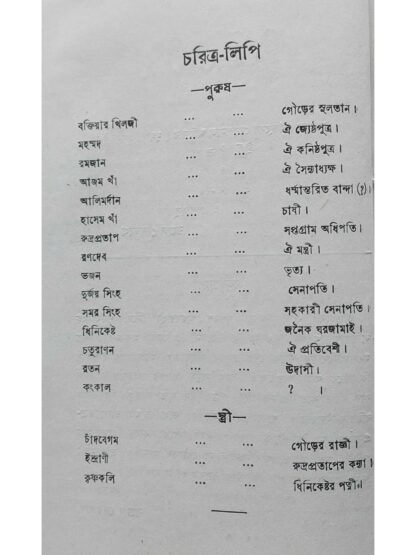 চরিত্র-লিপি
—পুরুষ—
বক্তিয়ার খিলজী ... ... গৌড়ের সুলতান।
মহম্মদ ... ... ঐ জ্যেষ্ঠপুত্র।
রমজান ... ... ঐ কনিষ্ঠপুত্র।
আজম খাঁ ... ... ঐ সৈন্যাধ্যক্ষ।
আলিমর্দান ... ... ধর্ম্মান্তরিত বান্দা (?)।
হাসেম খাঁ ... ... চাষী।
রুদ্রপ্রতাপ ... ... সপ্তগ্রাম অধিপতি।
রণদেব ... ... ঐ মন্ত্রী।
ভজন ... ... ভৃত্য।
দুর্জয় সিংহ ... ... সেনাপতি।
সমর সিংহ ... ... সহকারী সেনাপতি।
ধিনিকেষ্ট ... ... জনৈক ঘরজামাই।
চতুরাণন ... ... ঐ প্রতিবেশী।
রতন ... ... উদাসী।
কংকাল ... ... ? ।
—স্ত্রী—
চাঁদবেগম ... ... গৌড়ের রাজ্ঞী।
ইন্দ্রাণী ... ... রুদ্রপ্রতাপের কন্যা।
কৃষ্ণকলি ... ... ধিনিকেষ্টর পত্নী।